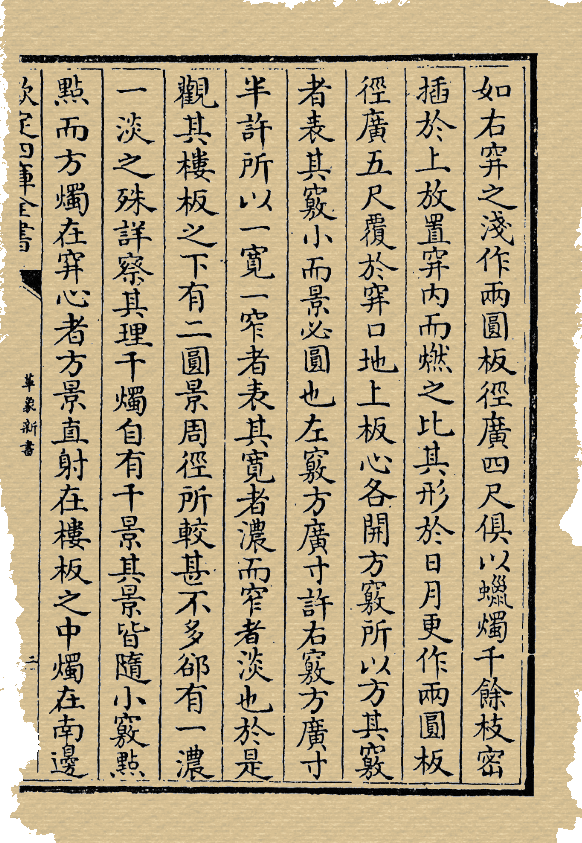 如右穽之淺作兩圓板徑廣四尺俱以蠟燭千餘枝密
插於上放置穽内而燃之比其形於日月更作兩圓板
徑廣五尺覆於穽口地上板心各開方竅所以方其竅
者表其竅小而景必圓也左竅方廣寸許右竅方廣寸
半許所以一寛一窄者表其寛者濃而窄者淡也於是
觀其樓板之下有二圓景周徑所較甚不多郤有一濃
一淡之殊詳察其理千燭自有千景其景皆隨小竅點
點而方燭在穽心者方景直射在樓板之中燭在南邊
欽定四庫全書
革象新書
二